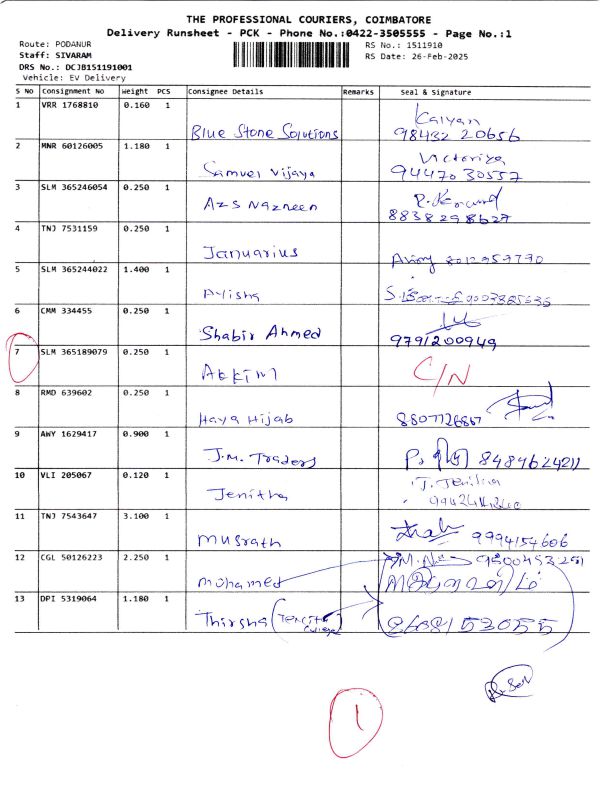 THE PROFESSIONAL COURIERS, COIMBATORE
Delivery Runsheet - PCK - Phone No.:0422-3505555 - Page No.:1
Route: PODANUR RS No.: 1511910
Staff: SIVARAM RS Date: 26-Feb-2025
DRS No.: DCJB151191001
Vehicle: EV Delivery
S NO Consignment No Weight PCS Consignee Details Remarks Seal & Signature
1 VRR 1768810 0.160 1
Kalyan
Blue Stone Solutions 98432 20656
2 MNR 60126005 1.180 1 Victoriya
Samuel Vijaya 94470 30557
3 SLM 365246054 0.250 1
AZS Nazneen 8838298627
4 TNJ 7531159 0.250 1
Januarius 8012957790
5 SLM 365244022 1.400 1
Ayisha 9003825636
6 CMM 334455 0.250 1
Shabir Ahmed 9791200949
7 SLM 365189079 0.250 1
Akkim C/N
8 RMD 639602 0.250 1
Haya Hijab 8807726867
9 AWY 1629417 0.900 1
J.M. Traders 8489624211
10 VLI 205067 0.120 1 J. Jenitha
Jenitha
11 TNJ 7543647 3.100 1
Musrath 9994154606
12 CGL 50126223 2.250 1 9500453251
Mohamed
13 DPI 5319064 1.180 1
Thirsha 2608153055
1